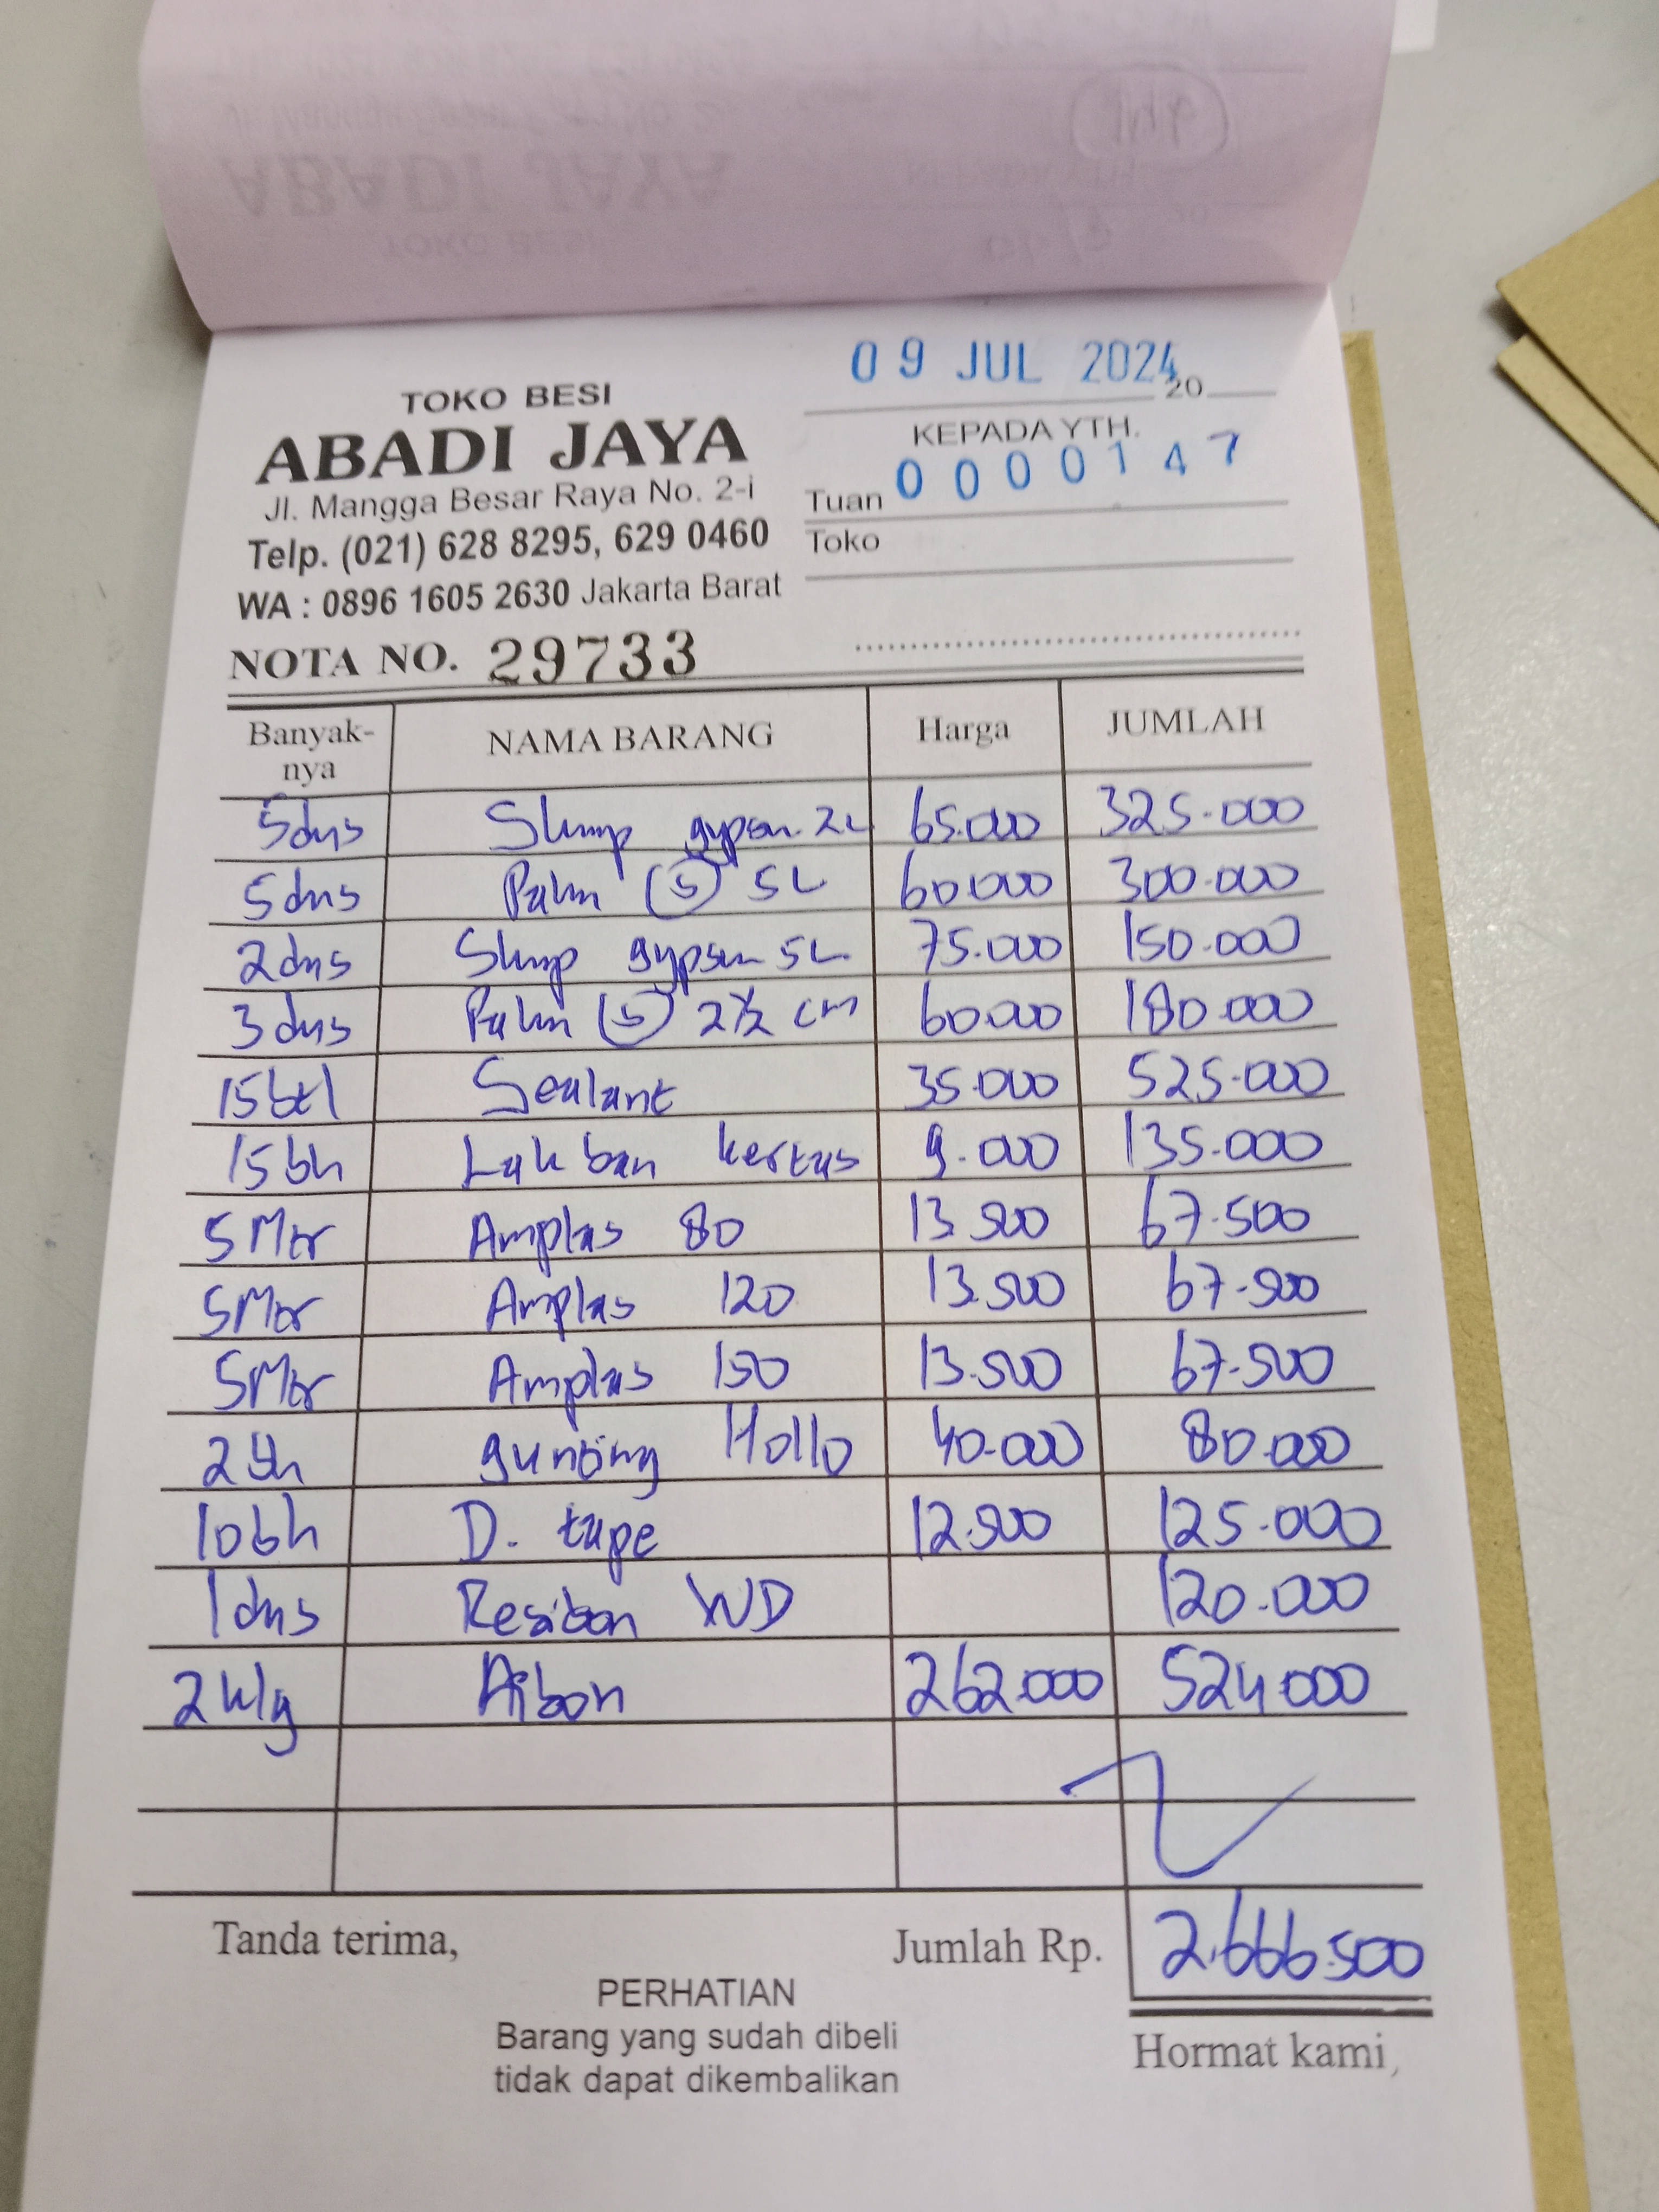 TOKO BESI
ABADI JAYA
Jl. Mangga Besar Raya No. 2-i
Telp. (021) 628 8295, 629 0460
WA : 0896 1605 2630 Jakarta Barat
NOTA NO. 29733
09 JUL 2024 20
KEPADA YTH.
Tuan 0000147
Toko
Banyak-nya NAMA BARANG Harga JUMLAH
5 dus gypsum 2L 65.000 325.000
5 dus Paku (S) 5L 60.000 300.000
2 dus gypsum 5L 75.000 150.000
3 dus Paku (S) 2½ cm 60.000 180.000
15 btl Sealant 35.000 525.000
15 bh Lakban kertas 9.000 135.000
5 Mtr Amplas 80 13.500 67.500
5 Mtr Amplas 120 13.500 67.500
5 Mtr Amplas 150 13.500 67.500
2 gunting Hollo 40.000 80.000
10 bh D. tape 12.500 125.000
1 dus Resibon WD 120.000
2 klg Aibon 262.000 524.000
Tanda terima, Jumlah Rp. 2.666.500
PERHATIAN
Barang yang sudah dibeli
tidak dapat dikembalikan
Hormat kami,